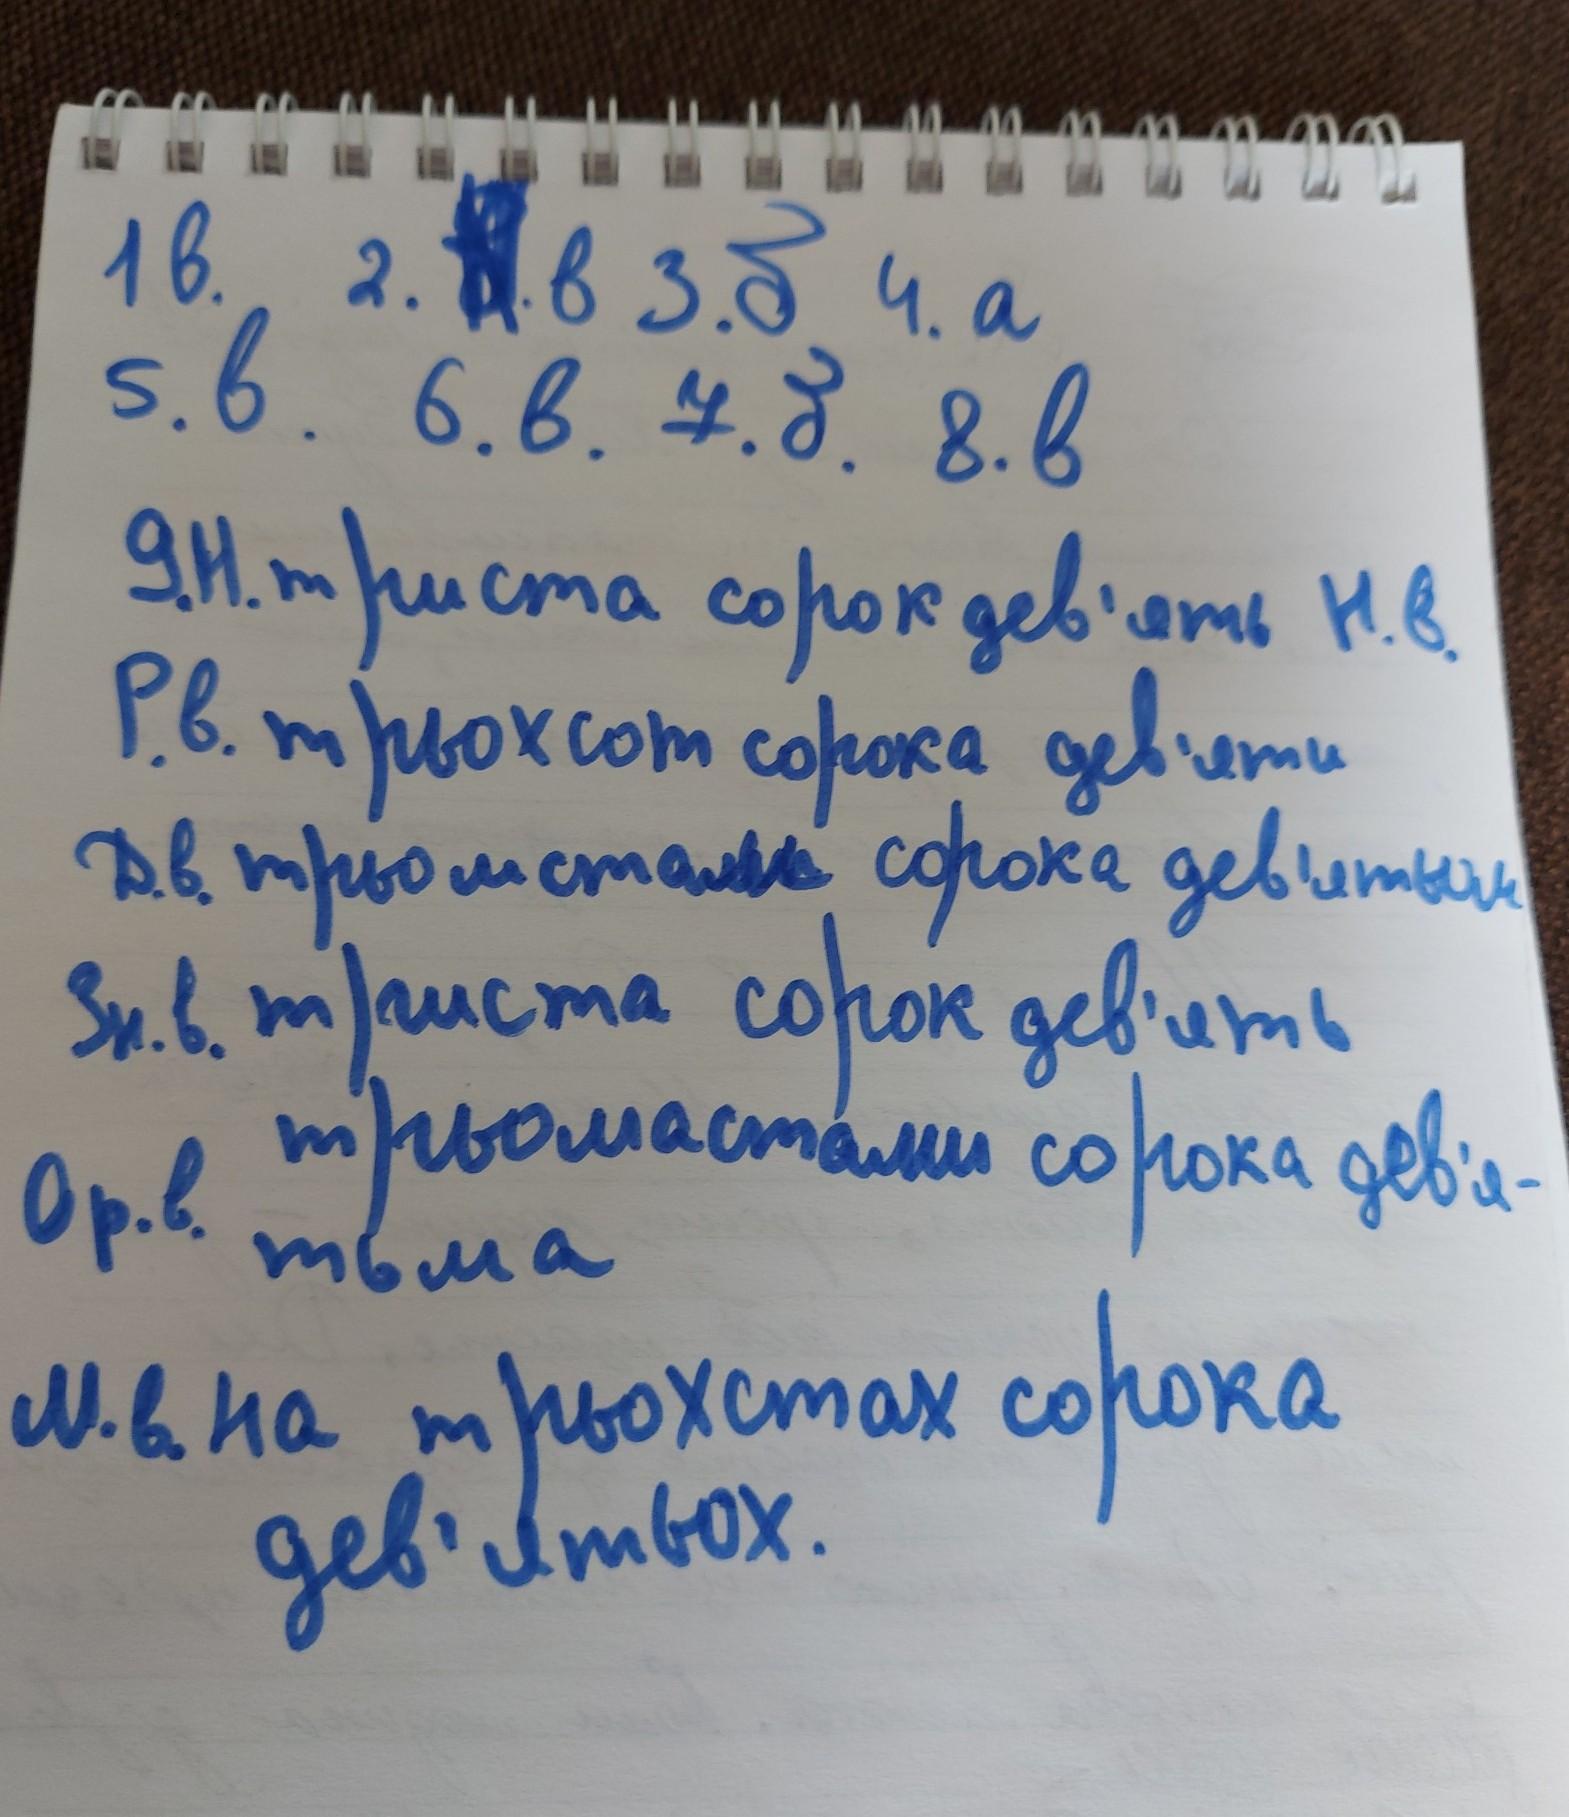 1 в. 2. в 3. б 4. а
5. в. 6. в. 7. б. 8. в
9. Н. триста сорок дев'ять Н. в.
Р. в. трьохсот сорока дев'яти
Д. в. трьомстам сорока дев'ятьом
Зн. в. триста сорок дев'ять
Ор. в. трьомастами сорока дев'я-
тьма
М. в. на трьохстах сорока
дев'ятьох.